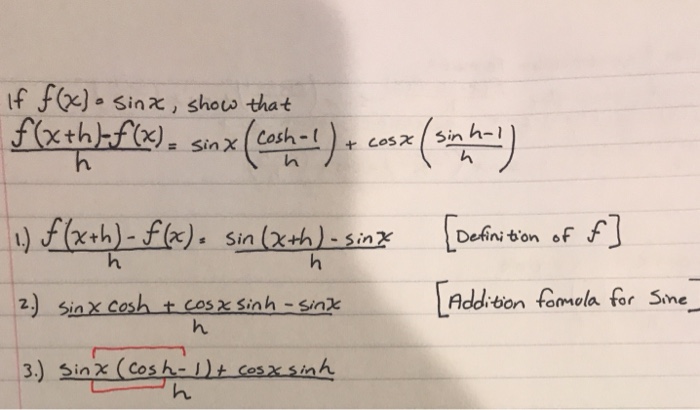 If f(x) = sinx, show that
f(x+h)-f(x) / h = sin x (cosh-1 / h) + cosx (sin h-1 / h)
1.) f(x+h) - f(x) / h = sin (x+h) - sinx / h [Definition of f]
2.) sinx cosh + cosx sinh - sinx / h [Addition formola for Sine
3.) sinx (cosh-1) + cosx sinh / h